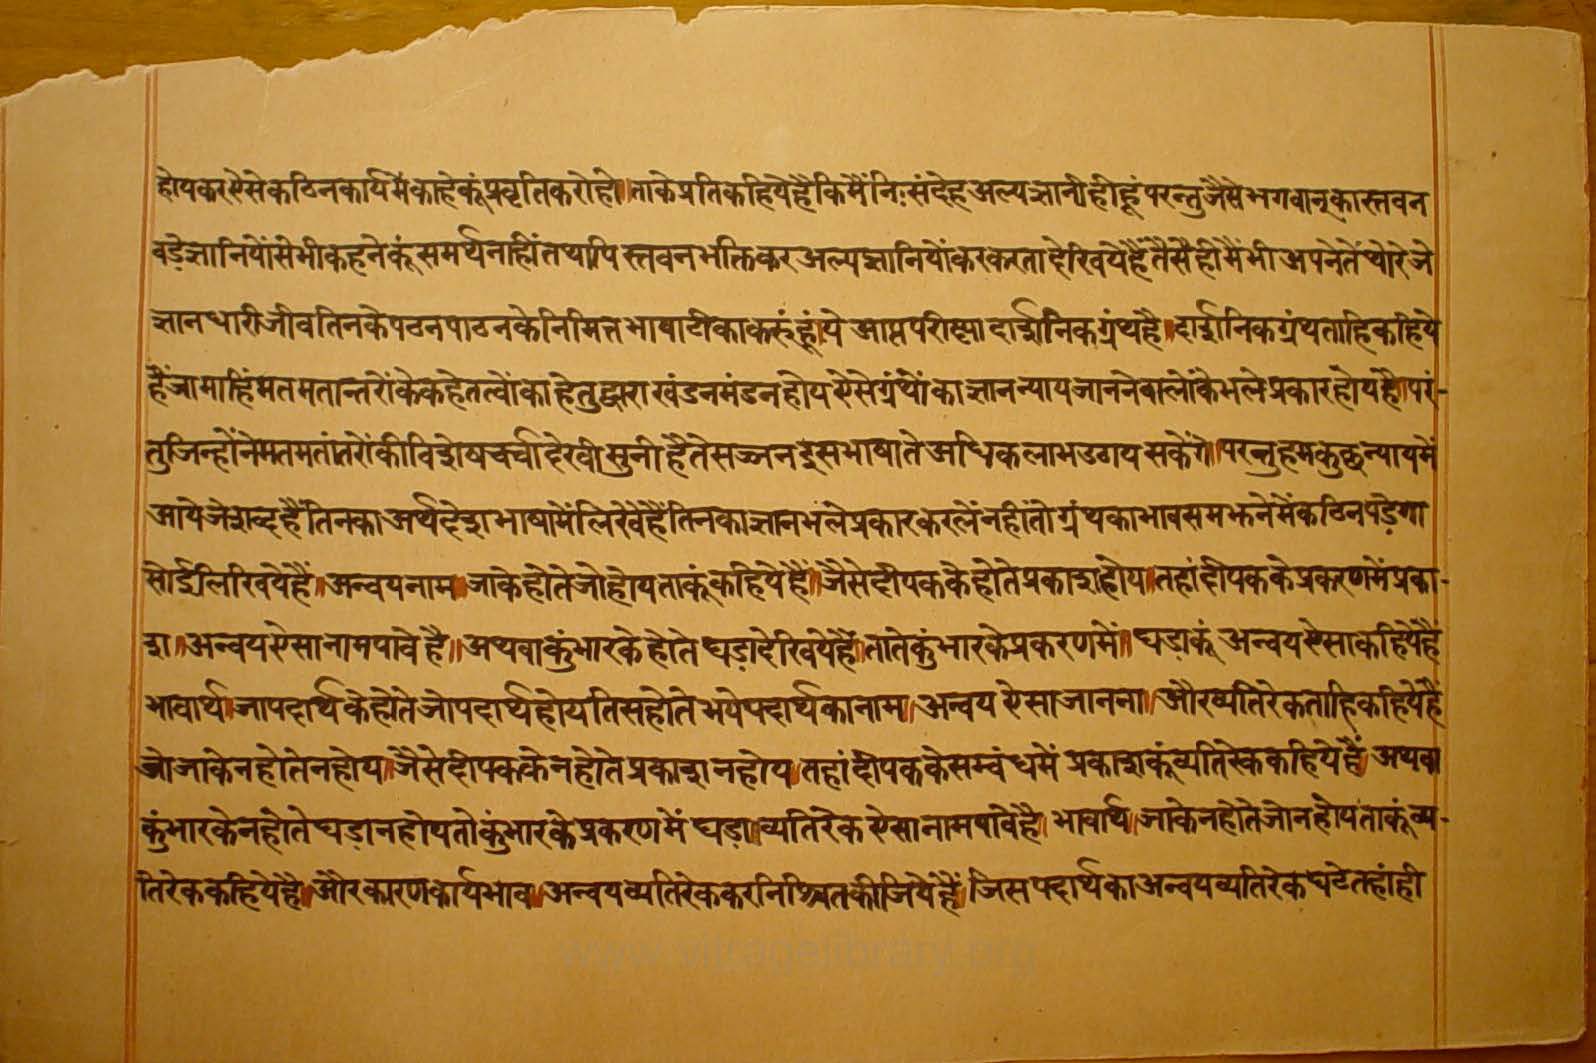 होयकर ऐसे कठिन कार्यमें काहेकूं प्रवृति करो हो॥ ताके प्रति कहिये है कि मैं निःसंदेह अल्पज्ञानी ही हूं परन्तु जैसे भगवान् का स्तवन
बड़े ज्ञानियों से भी कहनेकूं समर्थ नाहीं तथापि स्तवन भक्तिकर अल्पज्ञानियोंकर करता देखिये हैं तैसे ही मैं भी अपनेतें थोरे जे
ज्ञानधारी जीव तिनके पठन पाठनके निमित्त भाषा टीका करूं हूं। ये आप्तपरीक्षा दार्शनिक ग्रंथ है॥ दार्शनिक ग्रंथ ताहि कहिये
हैं जामाहिं मतमतान्तरोंके कहे तत्वोंका हेतुद्वारा खंडन मंडन होय ऐसे ग्रंथोंका ज्ञान न्याय जाननेवालोंके भले प्रकार होय है॥ परं-
तु जिन्होंने मतमतांतरोंकी विशेष चर्चा देखी सुनी है ते सज्जन इस भाषाते अधिक लाभ उठाय सकेंगे॥ परन्तु हम कुछ न्यायमें
आये जे शब्द हैं तिनका अर्थ देशभाषामें लिखे हैं तिनका ज्ञान भले प्रकार करलें नहीं तो ग्रंथका भाव समझनेमें कठिन पड़ेगा
सोई लिखिये हैं॥ अन्वय नाम॥ जाके होते जो होय ताकूं कहिये है॥ जैसे दीपकके होते प्रकाश होय॥ तहां दीपकके प्रकरणमें प्रका-
श॥ अन्वय ऐसा नाम पावे है॥ अथवा कुंभारके होते घड़ा देखिये है॥ ताते कुंभारके प्रकरणमें॥ घड़ाकूं अन्वय ऐसा कहिये हैं
भावार्थ॥ जा पदार्थके होते जो पदार्थ होय तिस होते भये पदार्थका नाम॥ अन्वय ऐसा जानना॥ और व्यतिरेक ताहि कहिये हैं
जो जाके न होते न होय॥ जैसे दीपकके न होते प्रकाश न होय॥ तहां दीपकके सम्बंधमें प्रकाशकूं व्यतिरेक कहिये है॥ अथवा
कुंभारके न होते घड़ा न होय तो कुंभारके प्रकरणमें घड़ा॥ व्यतिरेक ऐसा नाम पावे है॥ भावार्थ॥ जाके न होते जो न होय ताकूं व्य-
तिरेक कहिये है॥ और कारणकार्यभाव॥ अन्वयव्यतिरेककर निश्चित कीजिये है॥ जिस पदार्थका अन्वयव्यतिरेक घटे तहां ही
www.vitragelibrary.org